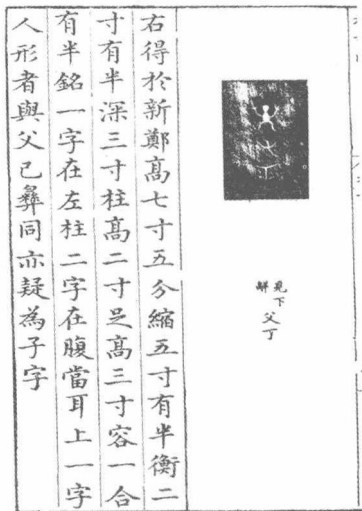 見下解
父丁
右得於新鄭髙七寸五分縮五寸有半衡二
寸有半深三寸柱髙二寸足髙三寸容一合
有半銘一字在左柱二字在腹當耳上一字
人形者與父己彝同亦疑為子字